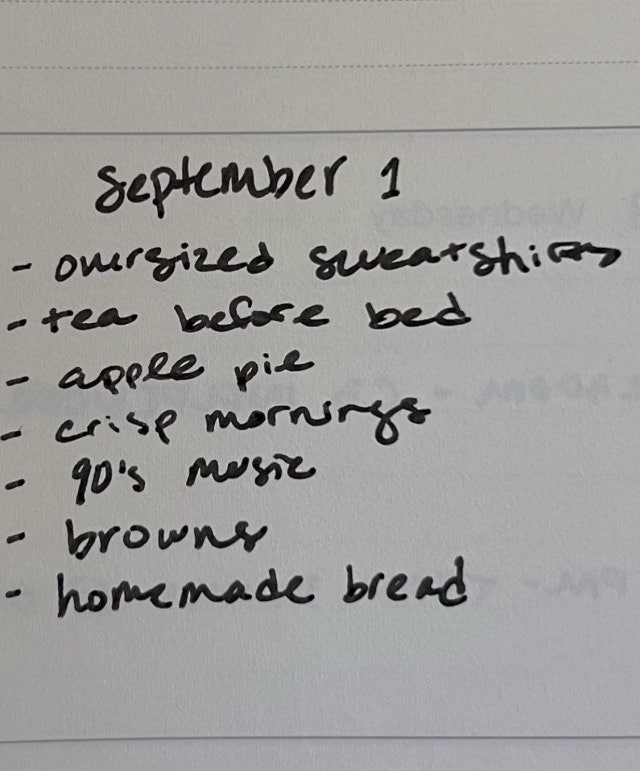 September 1
- oversized sweatshirts
- tea before bed
- apple pie
- crisp mornings
- 90's music
- browns
- homemade bread
Wednesday